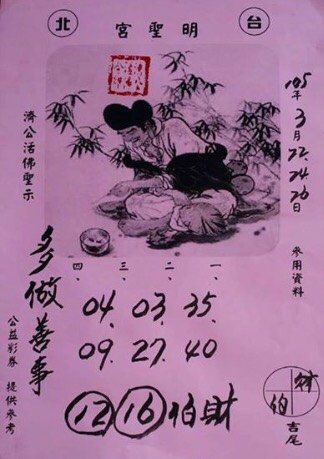 北 宮聖明 台
105年3月22.24.26日
參用資料
濟公活佛聖示
多做善事
公益彩券 提供參考
四、三、二、一、
04、03、35、
09、27、40
12 16 伯財
財
伯
吉尾